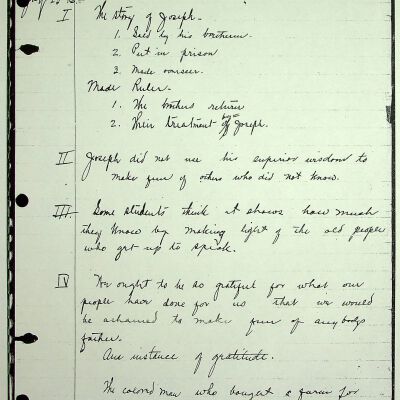 I The story of Joseph.
1. Sold by his brothers.
2. Put in prison
3. Made overseer.
Made Ruler.
1. The brothers return
2. Their treatment by Joseph.
II Joseph did not use his superior wisdom to
make fun of others who did not know.
III. Some students think it shows how much
they know by making light of the old people
who get up to speak.
IV We ought to be so grateful for what our
people have done for us that we would
be ashamed to make fun of anybodys
father.
An instance of gratitude.
The colored man who bought a farm for